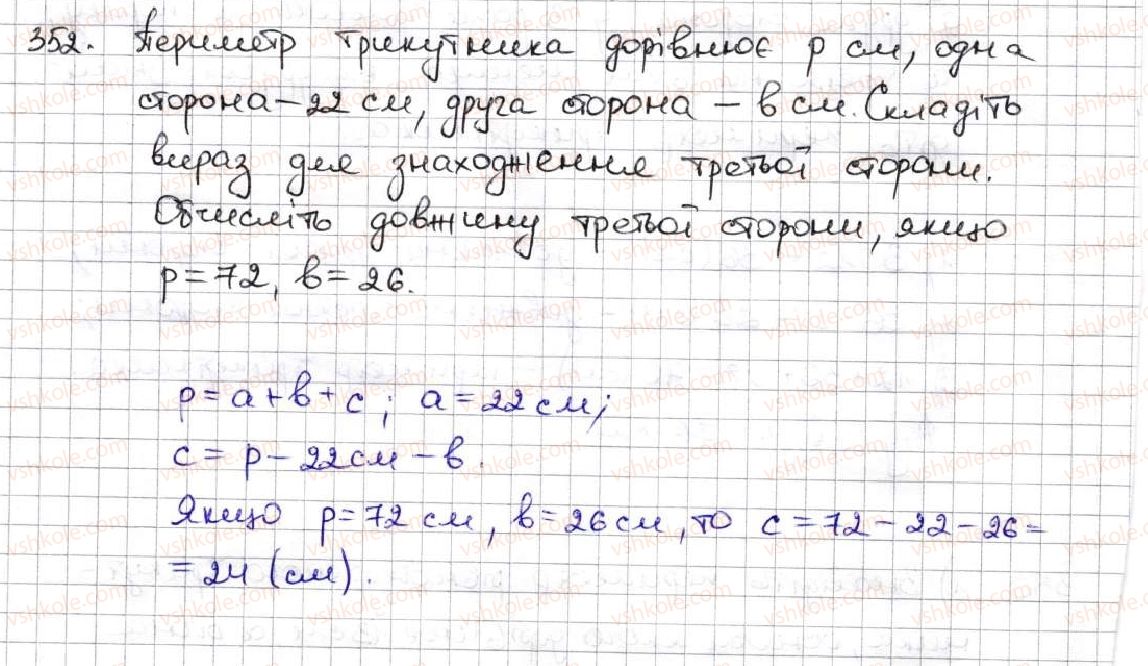 352. Периметр трикутника дорівнює p см, одна
сторона – 22 см, друга сторона – b см. Складіть
вираз для знаходження третьої сторони.
Обчисліть довжину третьої сторони, якщо
p = 72, b = 26.
p = a + b + c; a = 22 см;
c = p – 22 см – b.
Якщо p = 72 см, b = 26 см, то c = 72 – 22 – 26 =
= 24 (см).
vshkole.com